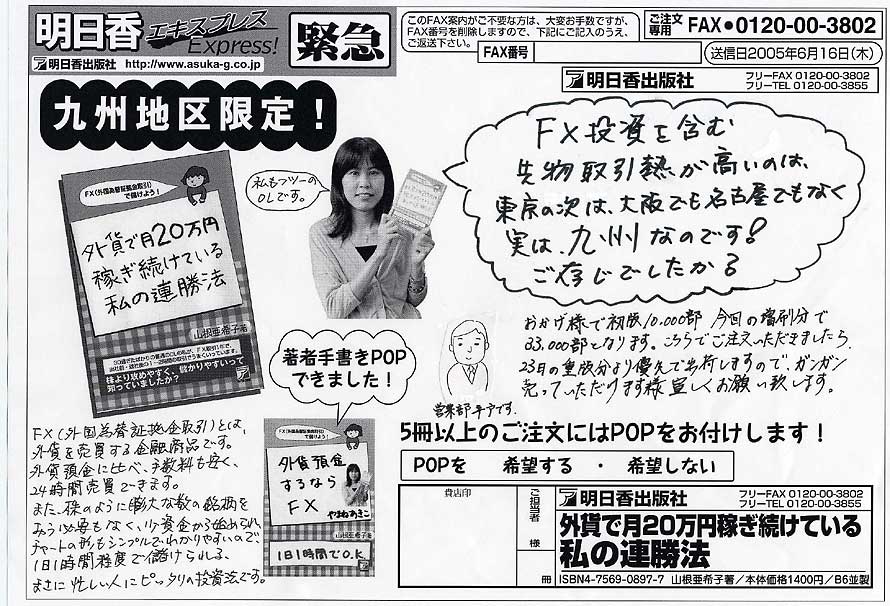 明日香
エキスプレス
Express!
緊急
明日香出版社 http://www.asuka-g.co.jp
このFAX案内がご不要な方は、大変お手数ですが、
FAX番号を削除しますので、下記にご記入のうえ、
ご返送下さい。
FAX番号
ご注文
専用 FAX●0120-00-3802
送信日2005年6月16日(木)
明日香出版社 フリーFAX 0120-00-3802
フリーTEL 0120-00-3855
九州地区限定!
FX投資を含む
先物取引熱が高いのは、
東京の次は、大阪でも名古屋でもなく
実は、九州なのです!
ご存じでしたか?
私もフツーの
OLです。
FX(外国為替証拠金取引)
で儲けよう!
外貨で月20万円
稼ぎ続けている
私の連勝法
山根亜希子著
株より攻めやすく、儲かりやすいって
知っていましたか?
おかげ様で初版10,000部 今回の増刷分で
33,000部となります。こちらでご注文いただきましたら、
23日の重版分より優先で出荷しますので、ガンガン
売っていただけます様宜しくお願い致します。
著者手書きPOP
できました!
FX(外国為替証拠金取引)
で儲けよう!
外貨預金
するなら
FX
やまねあきこ
山根亜希子著
1日1時間でO.K.
FX(外国為替証拠金取引)とは、
外貨を売買する金融商品です。
外貨預金に比べ、手数料も安く、
24時間売買できます。
また、株のように膨大な数の銘柄を
みる必要もなく、少資金から始められ、
チャートの形もシンプルでわかりやすいので
1日1時間程度で儲けられる、
まさに忙しい人にピッタリの投資法です。
5冊以上のご注文にはPOPをお付けします!
POPを 希望する ・ 希望しない
貴店印
ご担当者
様
冊
明日香出版社 フリーFAX 0120-00-3802
フリーTEL 0120-00-3855
外貨で月20万円稼ぎ続けている
私の連勝法
ISBN4-7569-0897-7 山根亜希子著/本体価格1400円/B6並製